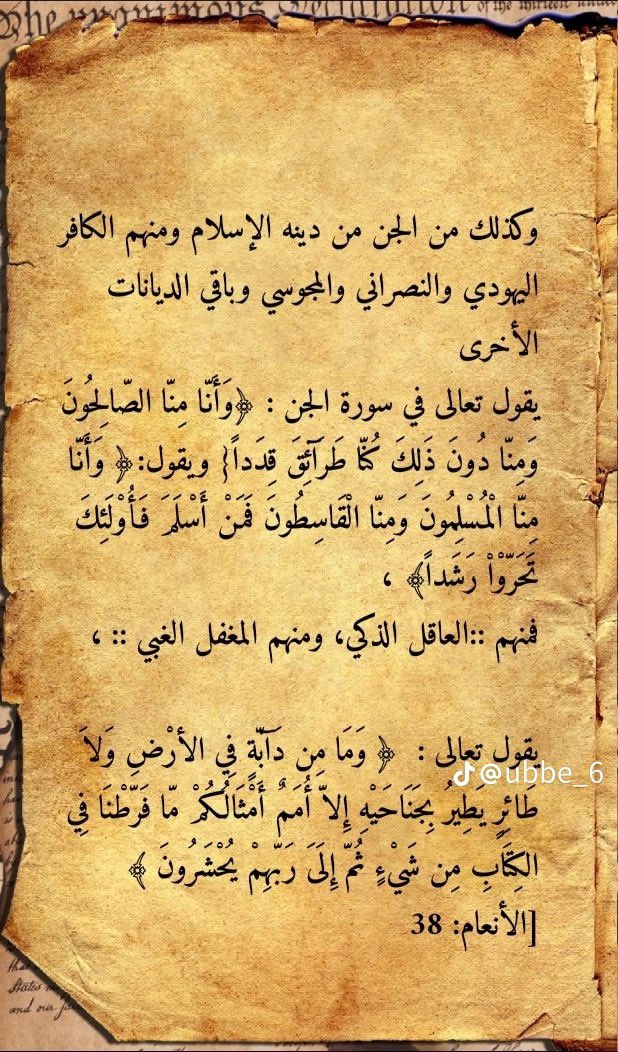 The unanimous Declaration of the thirteen united
وكذلك من الجن من دينه الإسلام ومنهم الكافر
اليهودي والنصراني والمجوسي وباقي الديانات
الأخرى
يقول تعالى في سورة الجن : ﴿وَأَنَّا مِنَّا الصَّالِحُونَ
وَمِنَّا دُونَ ذَلِكَ كُنَّا طَرَآئِقَ قِدَداً{ ويقول:﴿ وَأَنَّا
مِنَّا الْمُسْلِمُونَ وَمِنَّا الْقَاسِطُونَ فَمَنْ أَسْلَمَ فَأُوْلَئِكَ
تَحَرَّوْاْ رَشَداً﴾ ،
فمنهم ::العاقل الذكي، ومنهم المغفل الغبي :: ،
يقول تعالى : ﴿ وَمَا مِن دَآبَّةٍ فِي الأَرْضِ وَلاَ
@ubbe_6
طَائِرٍ يَطِيرُ بِجَنَاحَيْهِ إِلاَّ أُمَمٌ أَمْثَالُكُمْ مَّا فَرَّطْنَا فِي
الكِتَابِ مِن شَيْءٍ ثُمَّ إِلَىَ رَبِّهِمْ يُحْشَرُونَ ﴾
[الأنعام: 38
States
and our